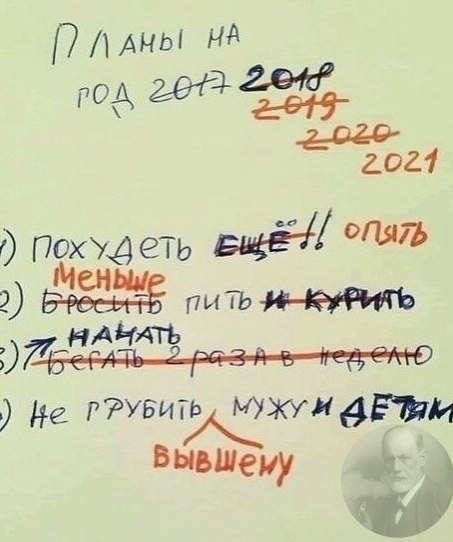 Планы на
год 2017 2018
2019
2020
2021
1) похудеть ещё!! опять
меньше
2) бросить пить и курить
начать
3) бегать 2 раза в неделю
) не грубить мужу и детям
бывшему